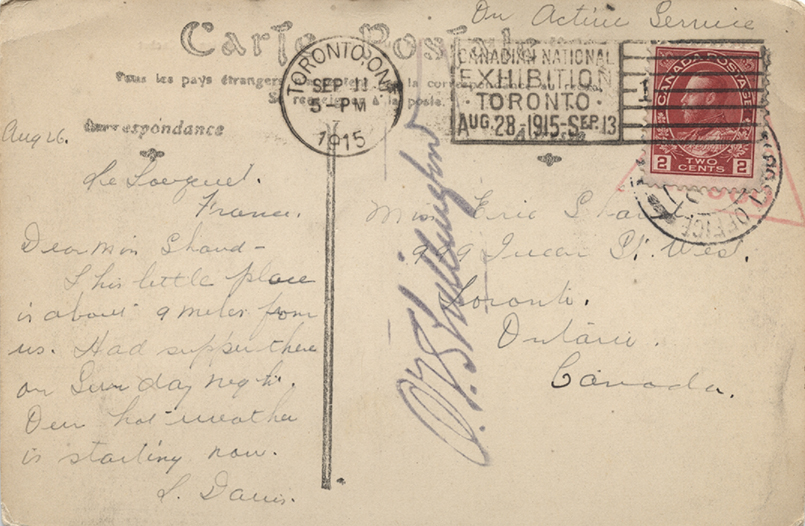 On Active Service
Carte Postale
Tous les pays étrangers
Se renseigner à la poste
TORONTO, ONT
SEP 11
5 - PM
1915
CANADIAN NATIONAL
EXHIBITION
TORONTO
AUG. 28 - 1915 - SEP. 13
1
CANADA POSTAGE
2 TWO CENTS 2
POST OFFICE
Aug 26.
Correspondance
Le Touquet.
France.
Dear Miss Shand -
This little place
is about 9 miles from
us. Had supper there
on Sunday nigh.
Our hot weather
is starting now.
S. Davis.
Miss Eric
999 St. West.
Toronto.
Ontario.
Canada.
Shillington